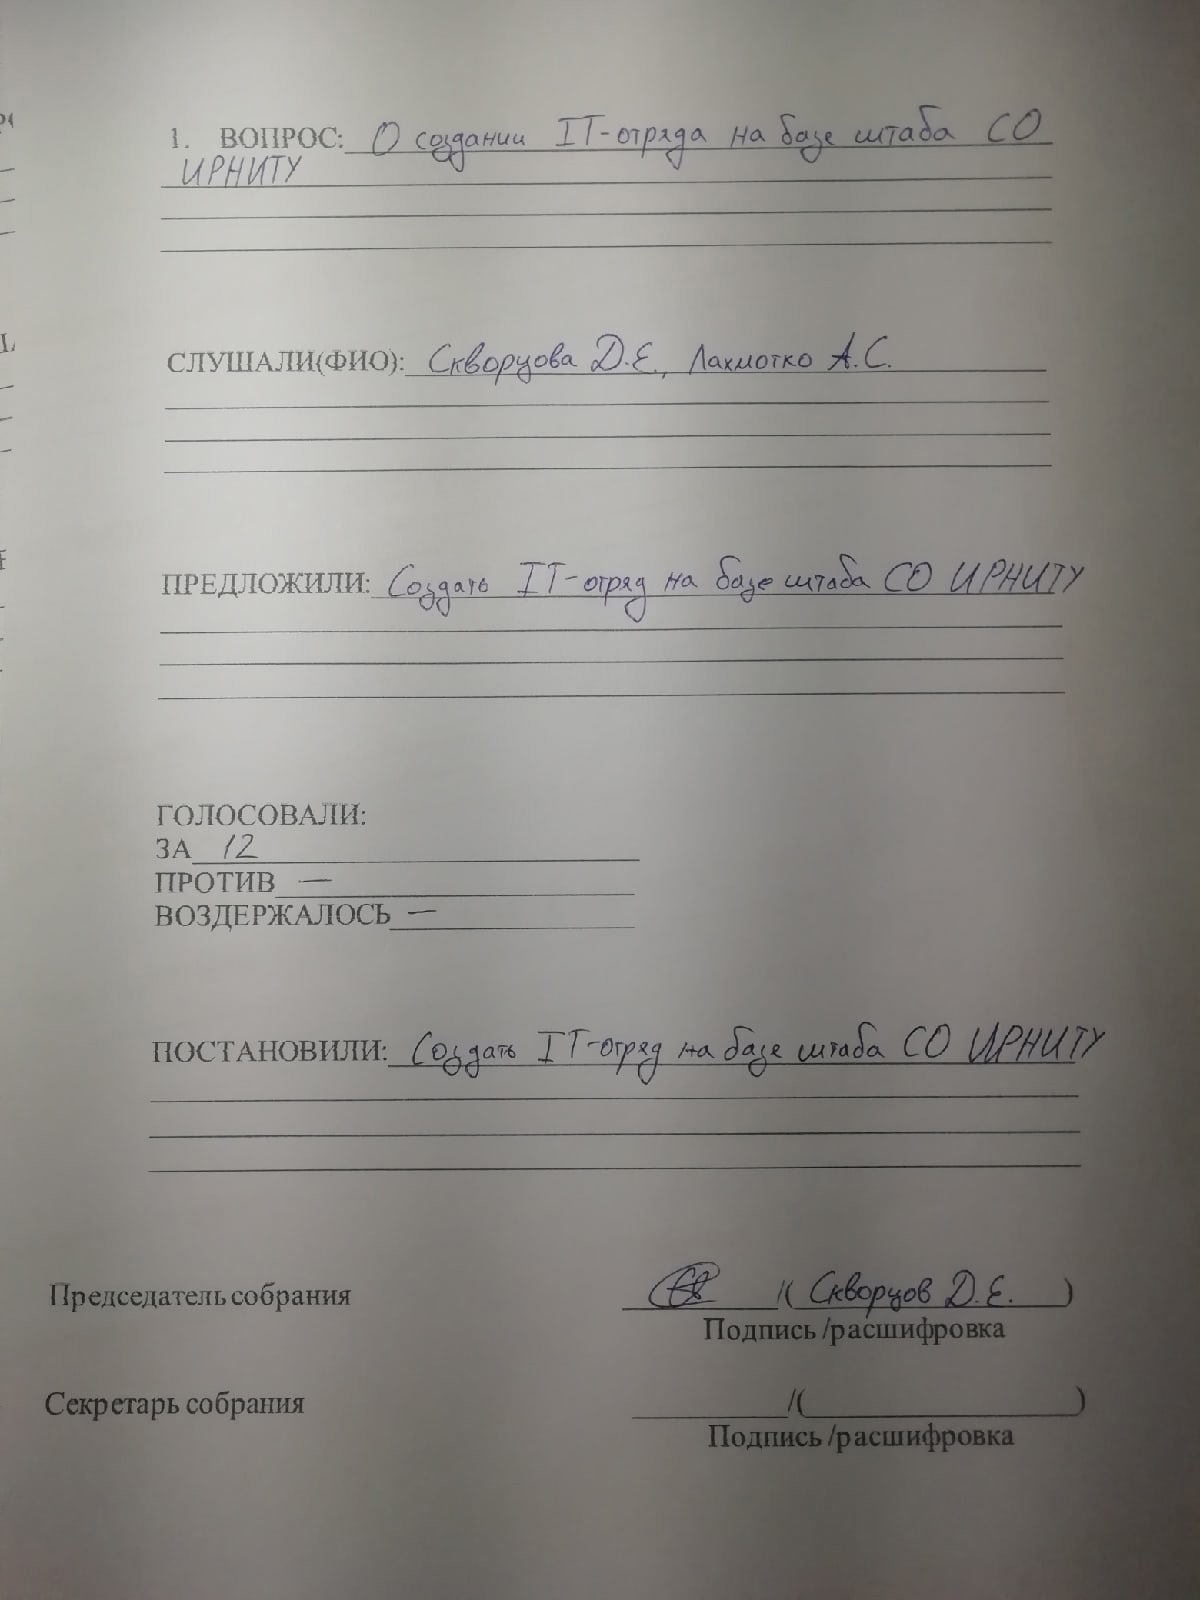 1. ВОПРОС: О создании IT-отряда на базе штаба СО
ИРНИТУ
СЛУШАЛИ(ФИО): Скворцова Д.Е., Лахмотко А.С.
ПРЕДЛОЖИЛИ: Создать IT-отряд на базе штаба СО ИРНИТУ
ГОЛОСОВАЛИ:
ЗА 12
ПРОТИВ —
ВОЗДЕРЖАЛОСЬ —
ПОСТАНОВИЛИ: Создать IT-отряд на базе штаба СО ИРНИТУ
Председатель собрания /( Скворцов Д.Е. )
Подпись /расшифровка
Секретарь собрания /( )
Подпись /расшифровка